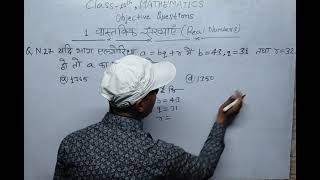 Class-10th, MATHEMATICS
Objective Questions
1 वास्तविक संख्याएँ (Real Numbers)
Q.N.27 यदि भाग एल्गोरिथ्म a = bq + r में b = 43, q = 31 तथा r = 32
हो तो a का
(a) 1365 (d) 1350
= 43
q = 31
r =